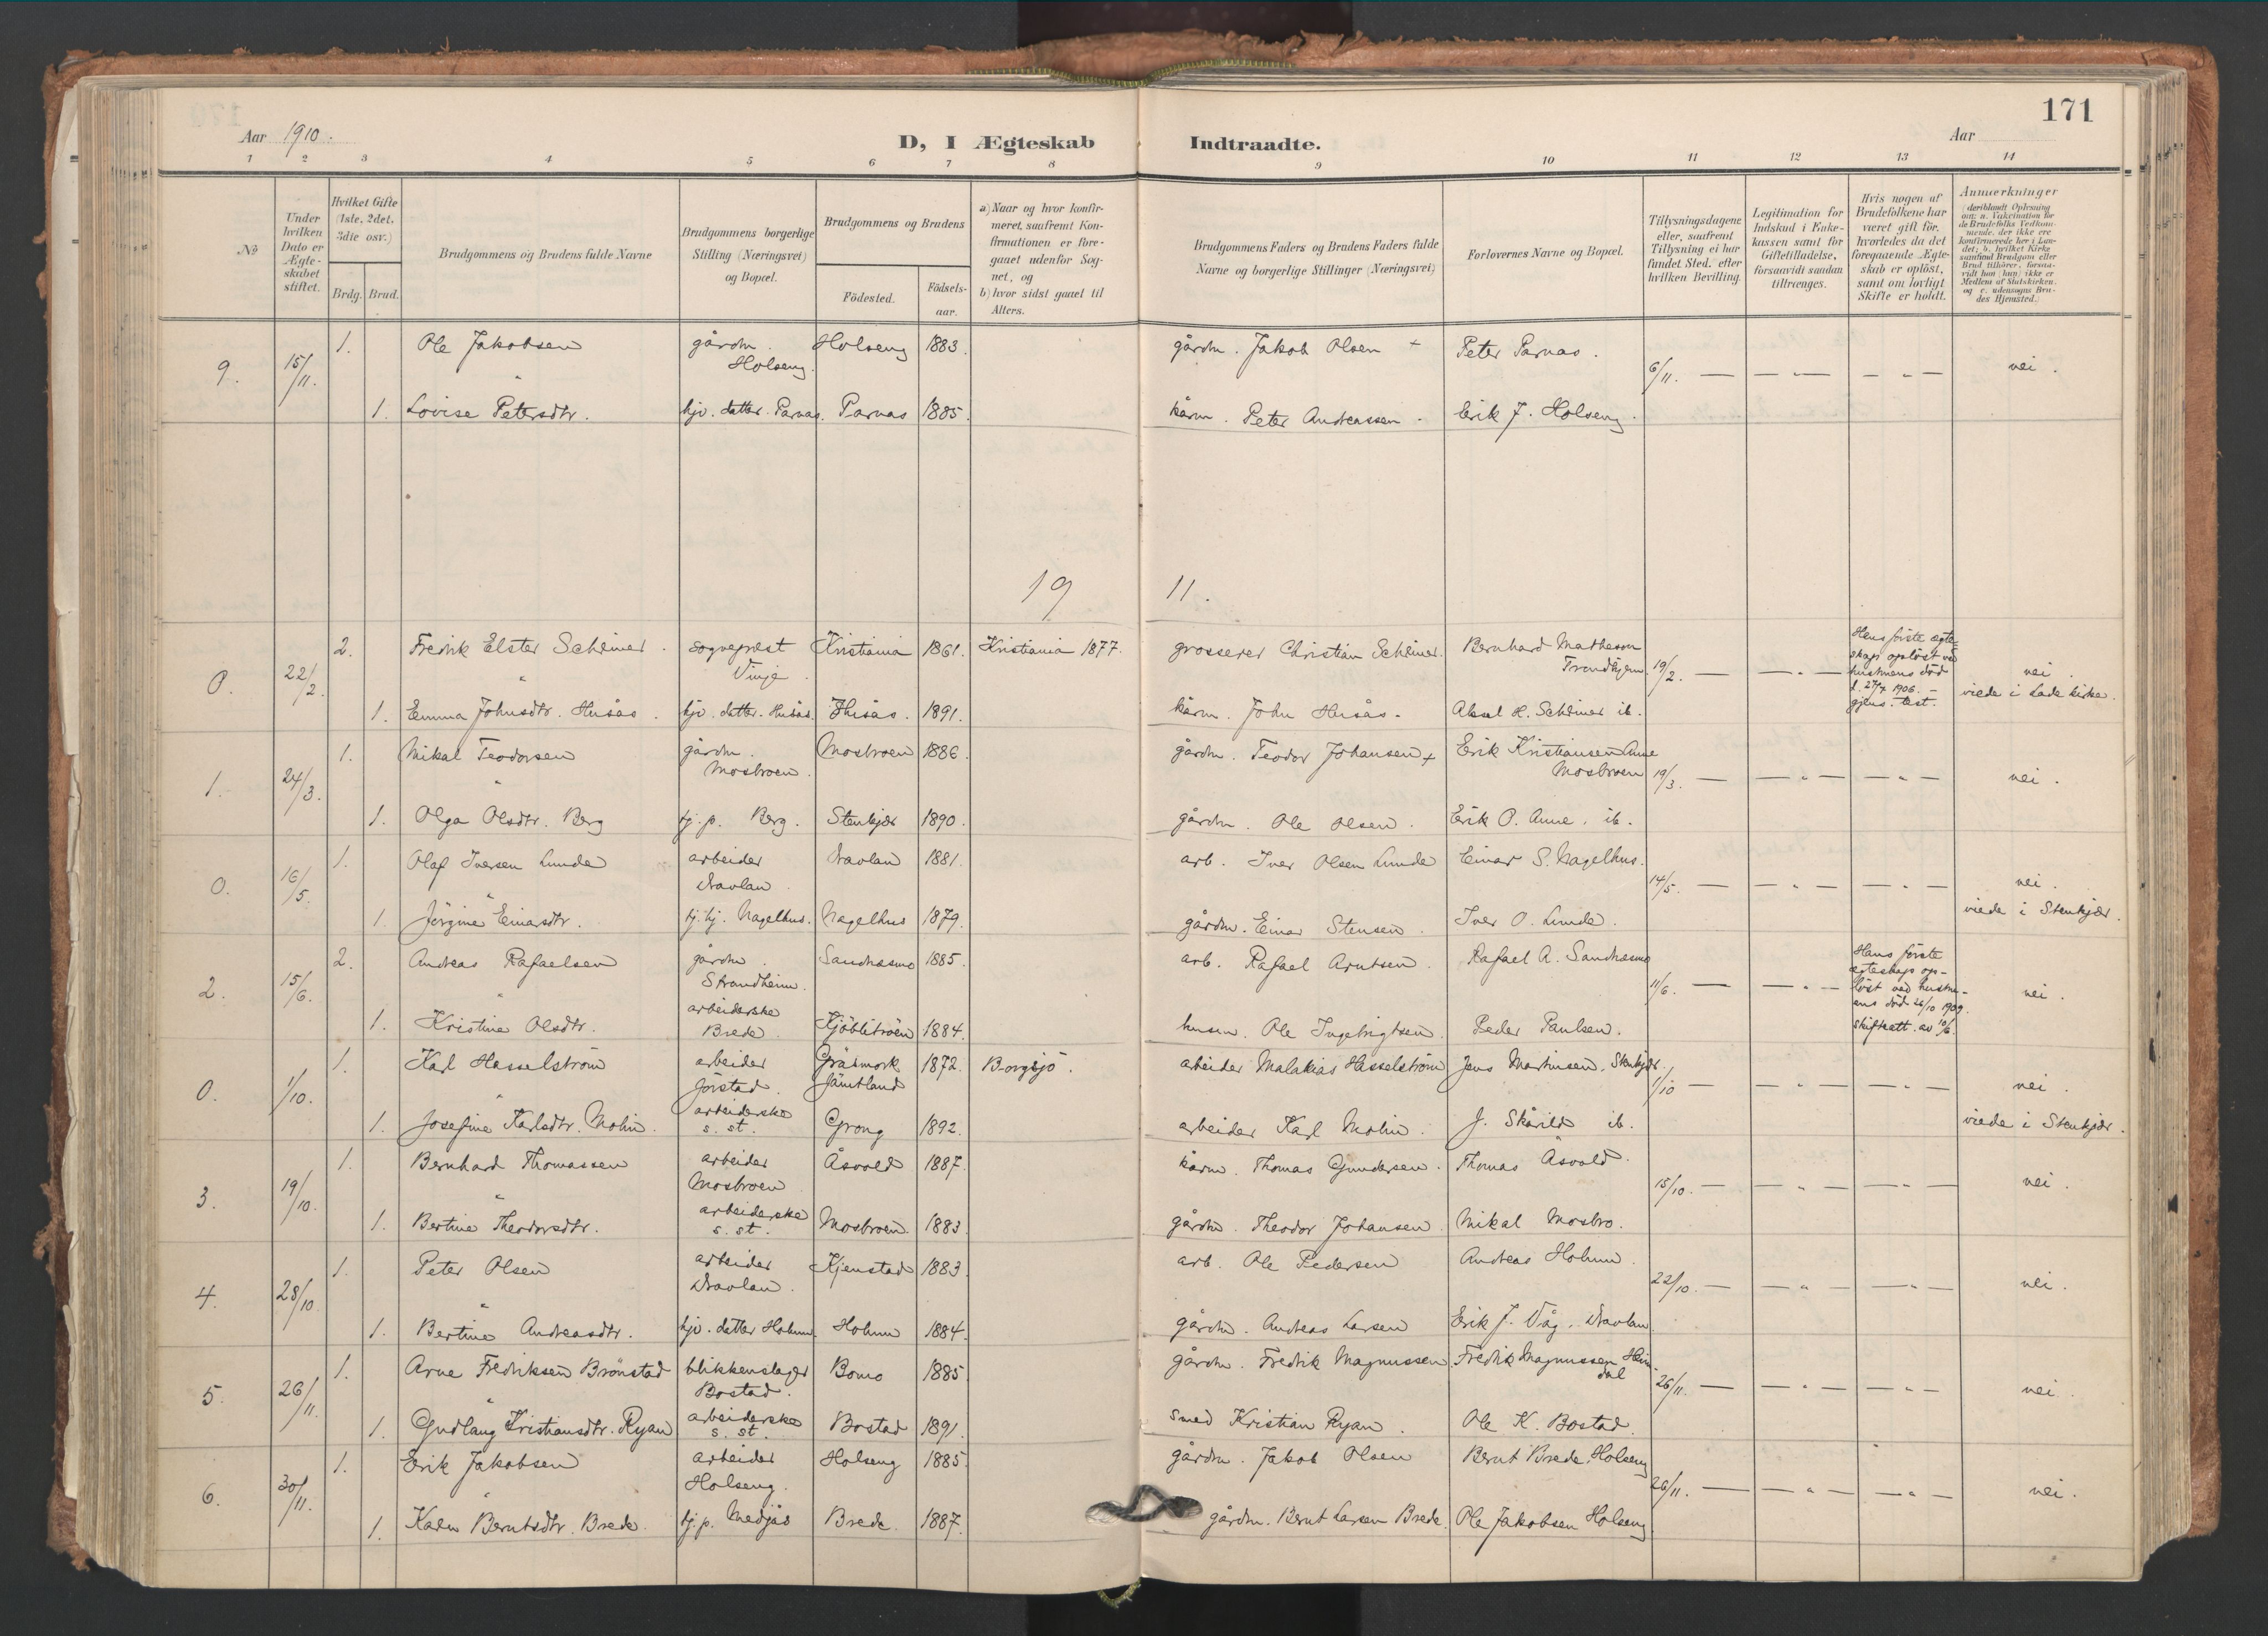 171
Aar 1910.
D, I Ægteskab Indtraadte.
Aar
1 2 3 4 5 6 7 8 9 10 11 12 13 14
№
Under hvilken Dato er Ægteskabet stiftet.
Hvilket Gifte (1ste, 2det, 3die osv.)
Brdg. Brud.
Brudgommens og Brudens fulde Navne
Brudgommens borgerlige Stilling (Næringsvei) og Bopæl.
Brudgommens og Brudens
Födested.
Födselsaar.
a) Naar og hvor konfirmeret, saafremt Konfirmationen er foregaaet udenfor Sognet, og
b) hvor sidst gaaet til Alters.
Brudgommens Faders og Brudens Faders fulde Navne og borgerlige Stillinger (Næringsvei)
Forlovernes Navne og Bopæl.
Tillysningsdagene eller, saafremt Tillysning ei har fundet Sted, efter hvilken Bevilling.
Legitimation for Indskud i Enkekassen samt for Giftetilladelse, forsaavidt saadan tiltrænges.
Hvis nogen af Brudefolkene har været gift för, hvorledes da det foregaaende Ægteskab er oplöst, samt om lovligt Skifte er holdt.
Anmærkninger
9. 15/11. 1. Ole Jakobsen gårdm. Holseng. Holseng 1883. gårdm. Jakob Olsen + Peter Parnas. 6/11. — — " — — " — nei.
1. Lovise Petersdtr. hjv. datter. Parnas. Parnas 1885. kårm. Peter Andreassen. Erik J. Holseng.
19 11.
0. 22/2. 2. Fredrik Elster Scheiner. sogneprest Vinje. Kristiania 1861. Kristiania 1877. grosserer Christian Scheiner. Bernhard Matheson Trondhjem. 19/2. — — " — Hans förste ægteskap oplöst ved hustruens död d. 27/7 1906. — gjens. test. nei. viede i Lade kirke.
1. Emma Johnsdtr. Husås. hjv. datter. Husås. Husås. 1891. kårm. John Husås. Aksel H. Scheiner ib.
1. 24/3. 1. Mikal Teodorsen gårdm. Mosbroen. Mosbroen 1886. gårdm. Teodor Johansen + Erik Kristiansen Aune Mosbroen 19/3. — — " — — " — nei.
1. Olga Olsdtr. Berg tj. p. Berg. Stenkjær 1890. gårdm. Ole Olsen. Erik P. Aune. ib.
0. 16/5. 1. Olaf Iversen Lunde arbeider Dravlan. Dravlan 1881. arb. Iver Olsen Lunde Einar S. Nagelhus. 14/5. — — " — — " — nei. viede i Stenkjær.
1. Jörgine Einarsdtr. tj. hj. Nagelhus. Nagelhus 1879. gårdm. Einar Stensen. Iver O. Lunde.
2. 15/6. 2. Andreas Rafaelsen gårdm. Strandheim. Sandnesmo 1885. arb. Rafael Arntsen. Rafael A. Sandnesmo 11/6. — — " — Hans förste ægteskap oplöst ved hustruens död 26/10 1909. skifteatt. av 10/6. nei.
1. Kristine Olsdtr. arbeiderske Brede. Kjöblitröen 1884. husm. Ole Ingebrigtsen Peder Paulsen.
0. 1/10. 1. Karl Hasselström arbeider Jörstad. Gräsmork Jämtland 1872. Borgsjö. arbeider Malakias Hasselström Jens Martinsen. Stenkjær. 1/10 — — " — — " — nei. viede i Stenkjær.
1. Josefine Karlsdtr. Molin. arbeiderske s. st. Grong 1892. arbeider Karl Molin. J. Skårild ib.
3. 19/10. 1. Bernhard Thomassen arbeider Mosbroen Åsvold 1887. kårm. Thomas Gundersen. Thomas Åsvold. 15/10. — — " — — " — nei.
1. Bertine Theodorsdtr. arbeiderske s. st. Mosbroen. 1883 gårdm. Theodor Johansen Mikal Mosbro.
4. 28/10. 1. Peter Olsen arbeider Dravlan. Kjenstad 1883. arb. Ole Pedersen Andreas Holmen. 22/10. — — " — — " — nei.
1. Bertine Andreasdtr. hjv. datter Holmen. Holmen 1884. gårdm. Andreas Larsen Erik J. Våg. Dravlan.
5. 26/11. 1. Arne Fredriksen Brönstad blikkenslager Bostad. Bomo 1885. gårdm. Fredrik Magnussen Fredrik Magnussen Heimdal 26/11. — — " — — " — nei.
1. Gudlaug Kristiansdtr. Ryan arbeiderske s. st. Bostad 1891. smed Kristian Ryan. Ole K. Bostad.
6. 30/11. 1. Erik Jakobsen arbeider Holseng. Holseng 1885. gårdm. Jakob Olsen Bernt Brede. Holseng 26/11. — — " — — " — nei.
1. Karen Berntsdtr. Brede. tj. p. Medjås Brede. 1887. gårdm. Bernt Larsen Brede. Ole Jakobsen Holseng.